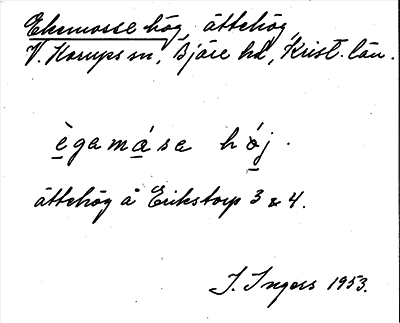 Ekemosse hög, ättehög,
V. Karups sn, Bjäre hd, Krist. län.
ègamása hój.
ättehög å Erikstorp 3 & 4.
I. Ingers 1953.